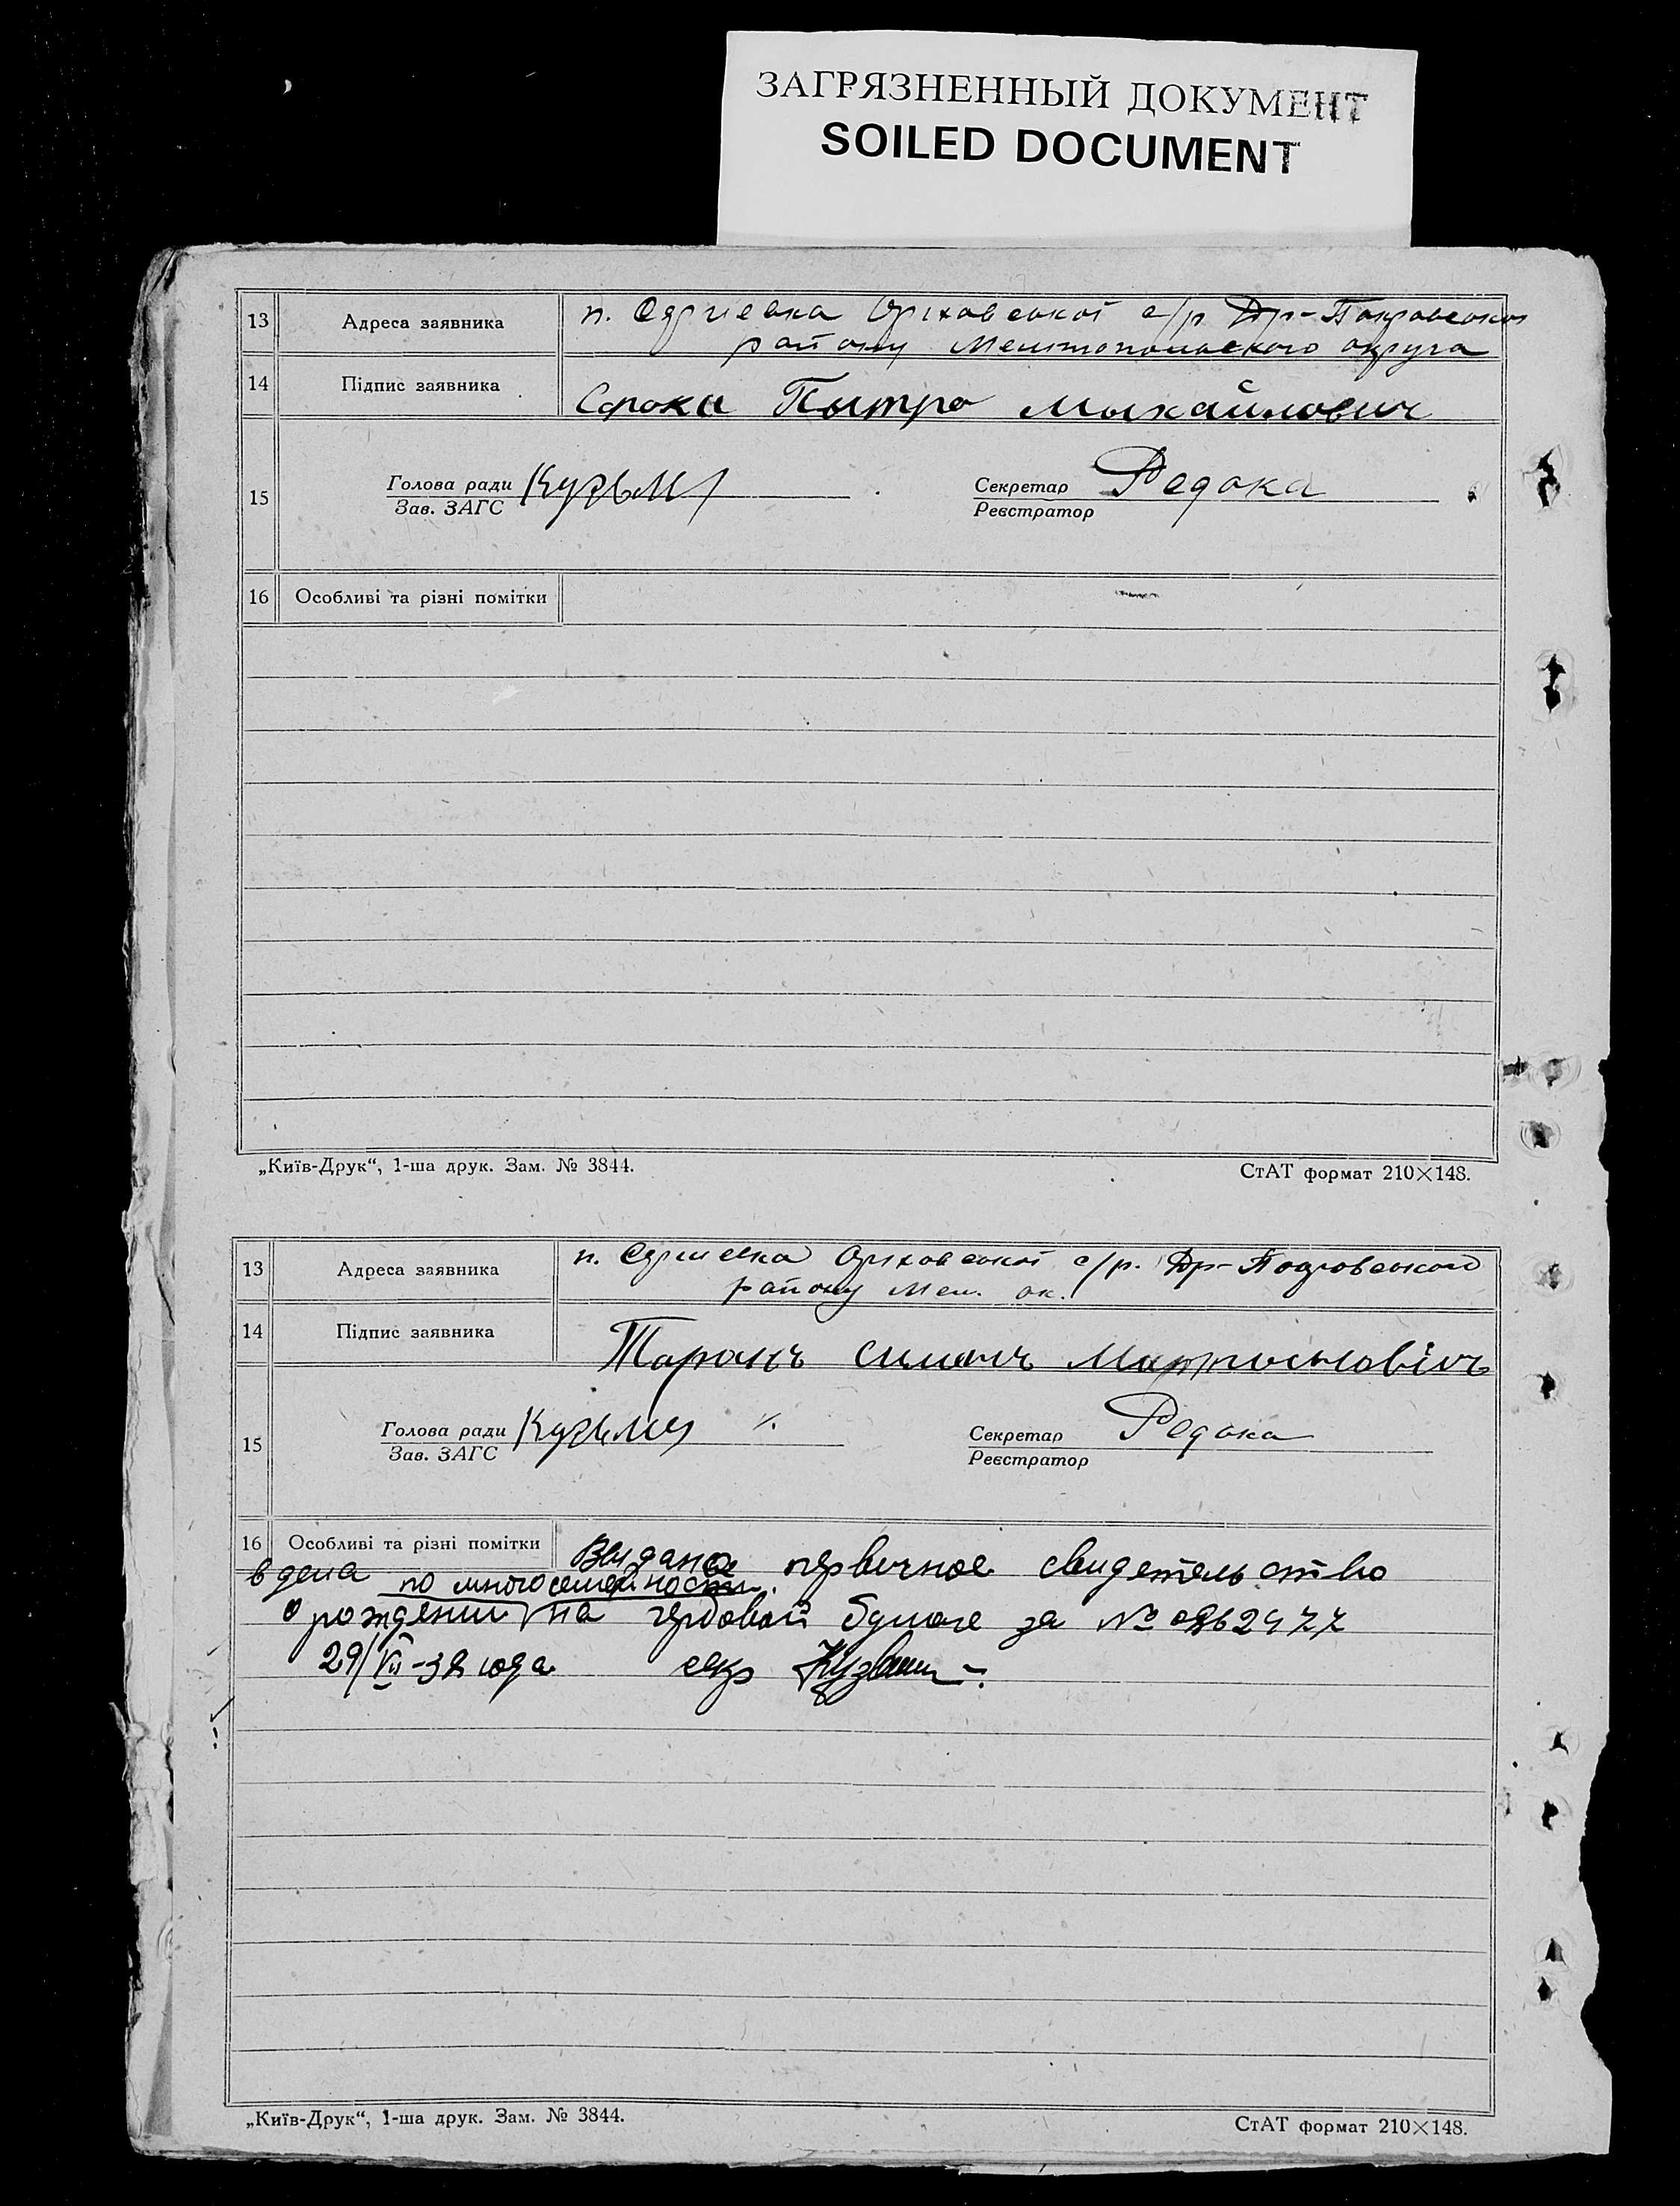 ЗАГРЯЗНЕННЫЙ ДОКУМЕНТ
SOILED DOCUMENT
13 Адреса заявника п. Оріховської с/р Др-Покровського
району Мелитопольского округа
14 Підпис заявника Сорока Пытро Мыхайлович
15 Голова ради Секретар Редока
Зав. ЗАГС Реєстратор
16 Особливі та різні помітки
„Київ-Друк“, 1-ша друк. Зам. № 3844. СтАТ формат 210×148.
13 Адреса заявника п. Оріховської с/р. Др-Покровського
району Мел. ок.
14 Підпис заявника Таранъ
15 Голова ради Секретар Редока
Зав. ЗАГС Реєстратор
16 Особливі та різні помітки Выдано первичное свидетельство
в дела по многосемейности.
о рождении на гербовой бумаге за №
29/VII-38 года секр
„Київ-Друк“, 1-ша друк. Зам. № 3844. СтАТ формат 210×148.